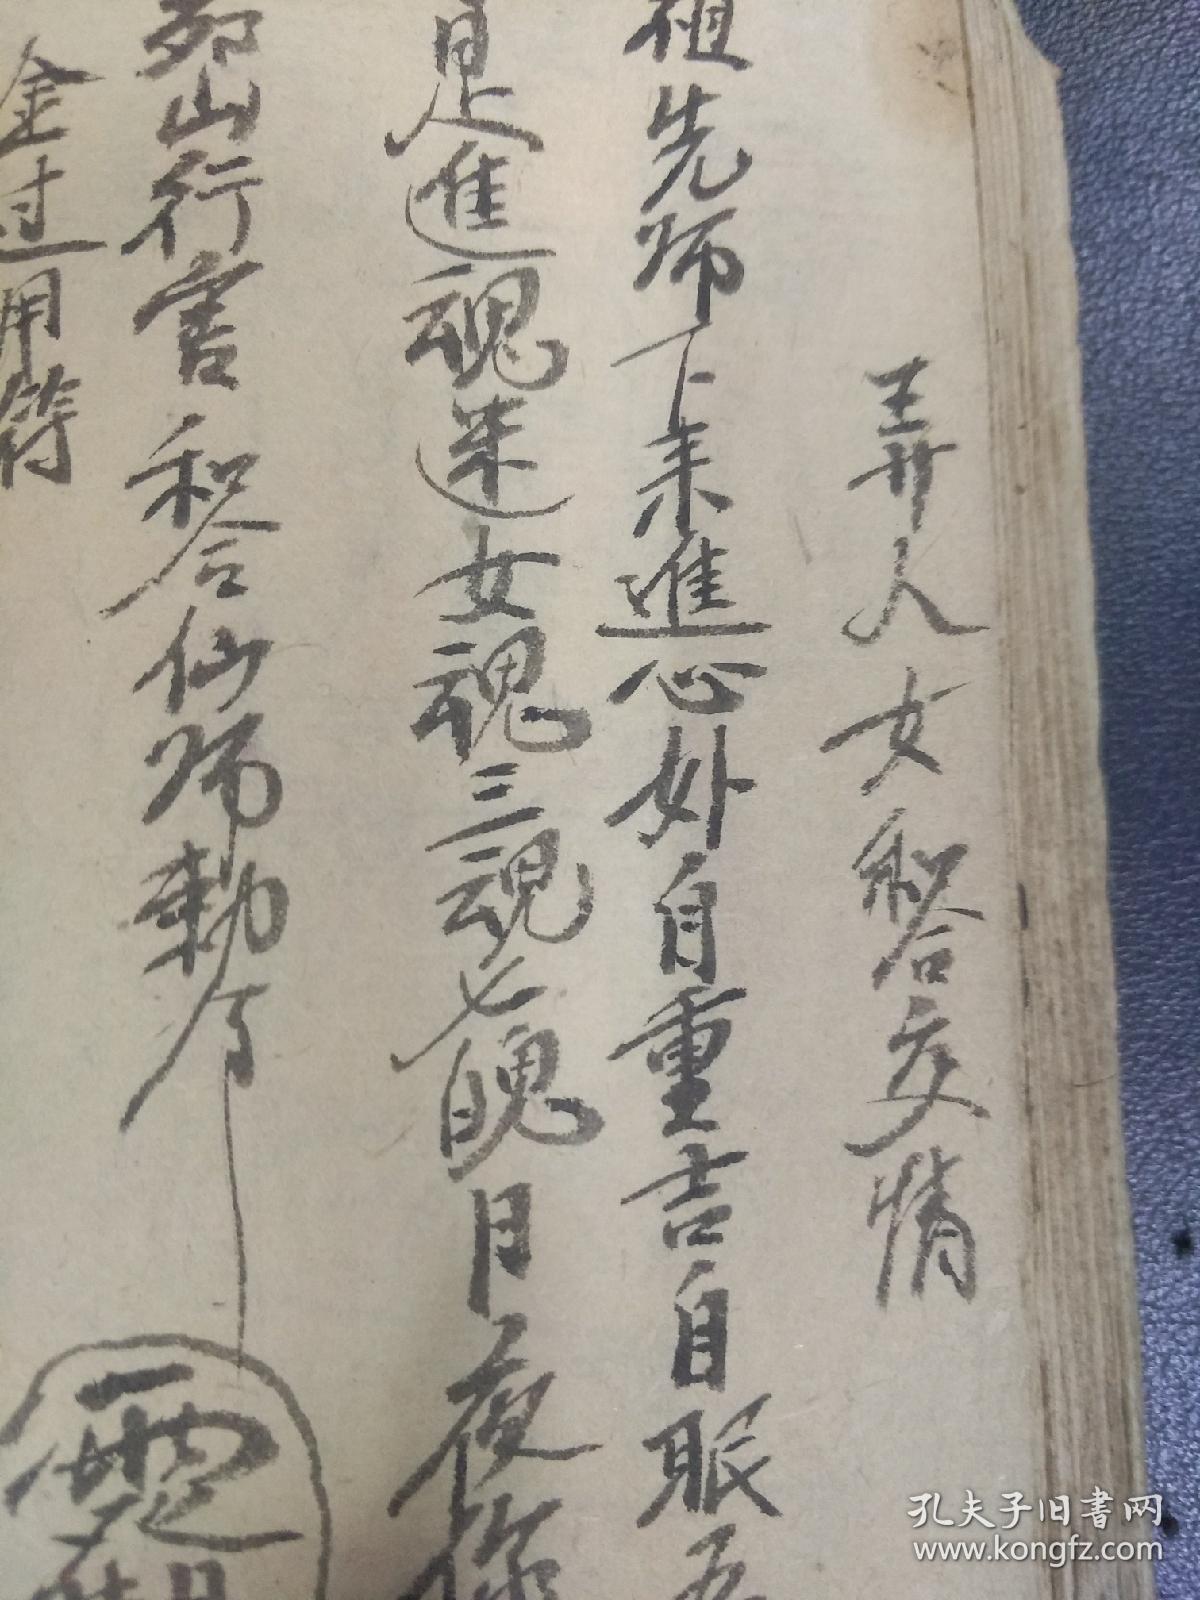 弄人女和合交情
祖先师下来進心外自重吉自眠五
是進魂迷女魂三魂七魄日夜
茆山行害和合仙师勅令
金过用符
孔夫子旧书网
www.kongfz.com